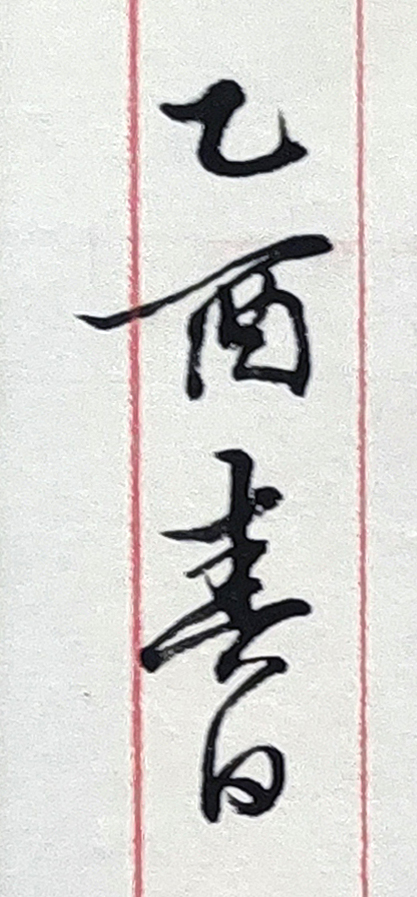 乙酉書